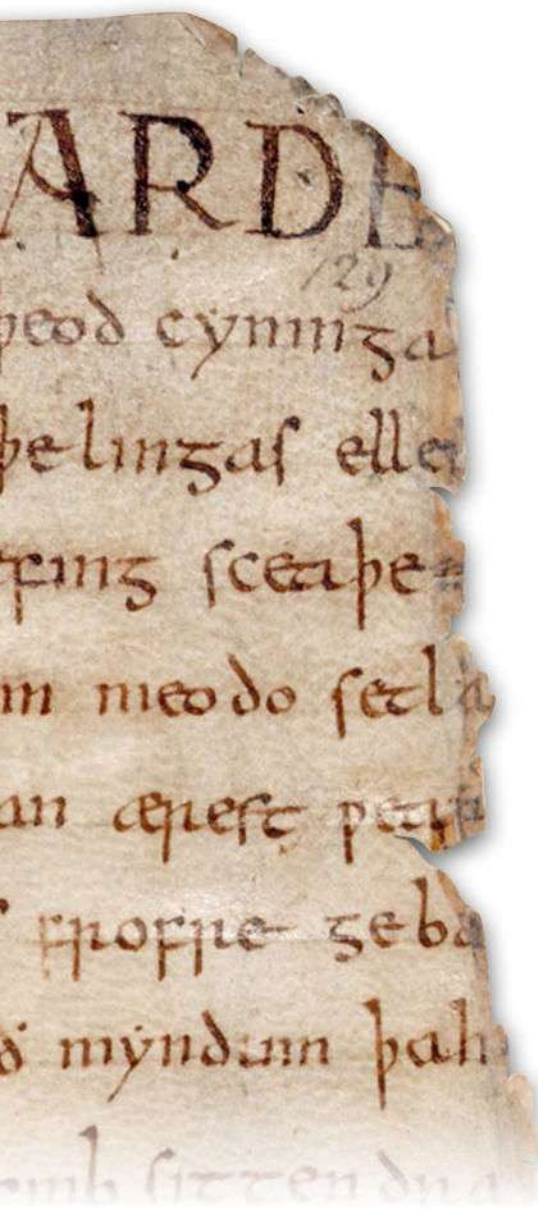 ARDE
129
þeod cyninga
þelingas elle
efing sceaþe
m meodo setla
an ærest ƿear
frofre geba
ð myndum þah
ymb sittendra